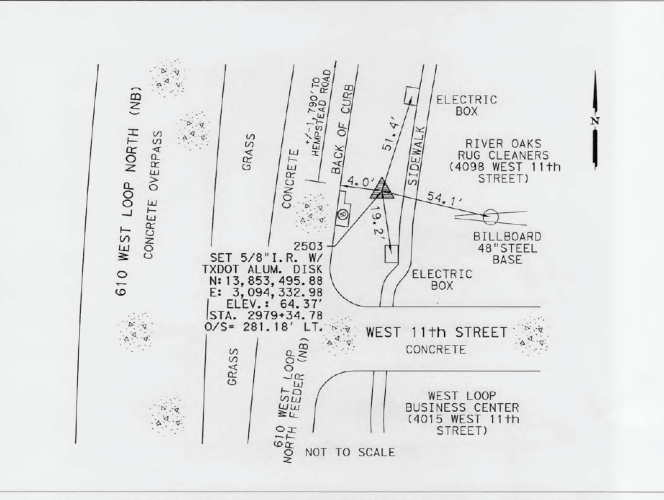 610 WEST LOOP NORTH (NB)
CONCRETE OVERPASS
GRASS
CONCRETE
+/-1,790' TO
HEMPSTEAD ROAD
BACK OF CURB
4.0'
51.4'
SIDEWALK
ELECTRIC
BOX
N
RIVER OAKS
RUG CLEANERS
(4098 WEST 11th
STREET)
54.1'
19.2'
BILLBOARD
48"STEEL
BASE
2503
SET 5/8"I.R. W/
TXDOT ALUM. DISK
N:13,853,495.88
E: 3,094,332.98
ELEV.: 64.37'
STA. 2979+34.78
O/S= 281.18' LT.
ELECTRIC
BOX
WEST 11th STREET
CONCRETE
GRASS
610 WEST LOOP
NORTH FEEDER (NB)
WEST LOOP
BUSINESS CENTER
(4015 WEST 11th
STREET)
NOT TO SCALE